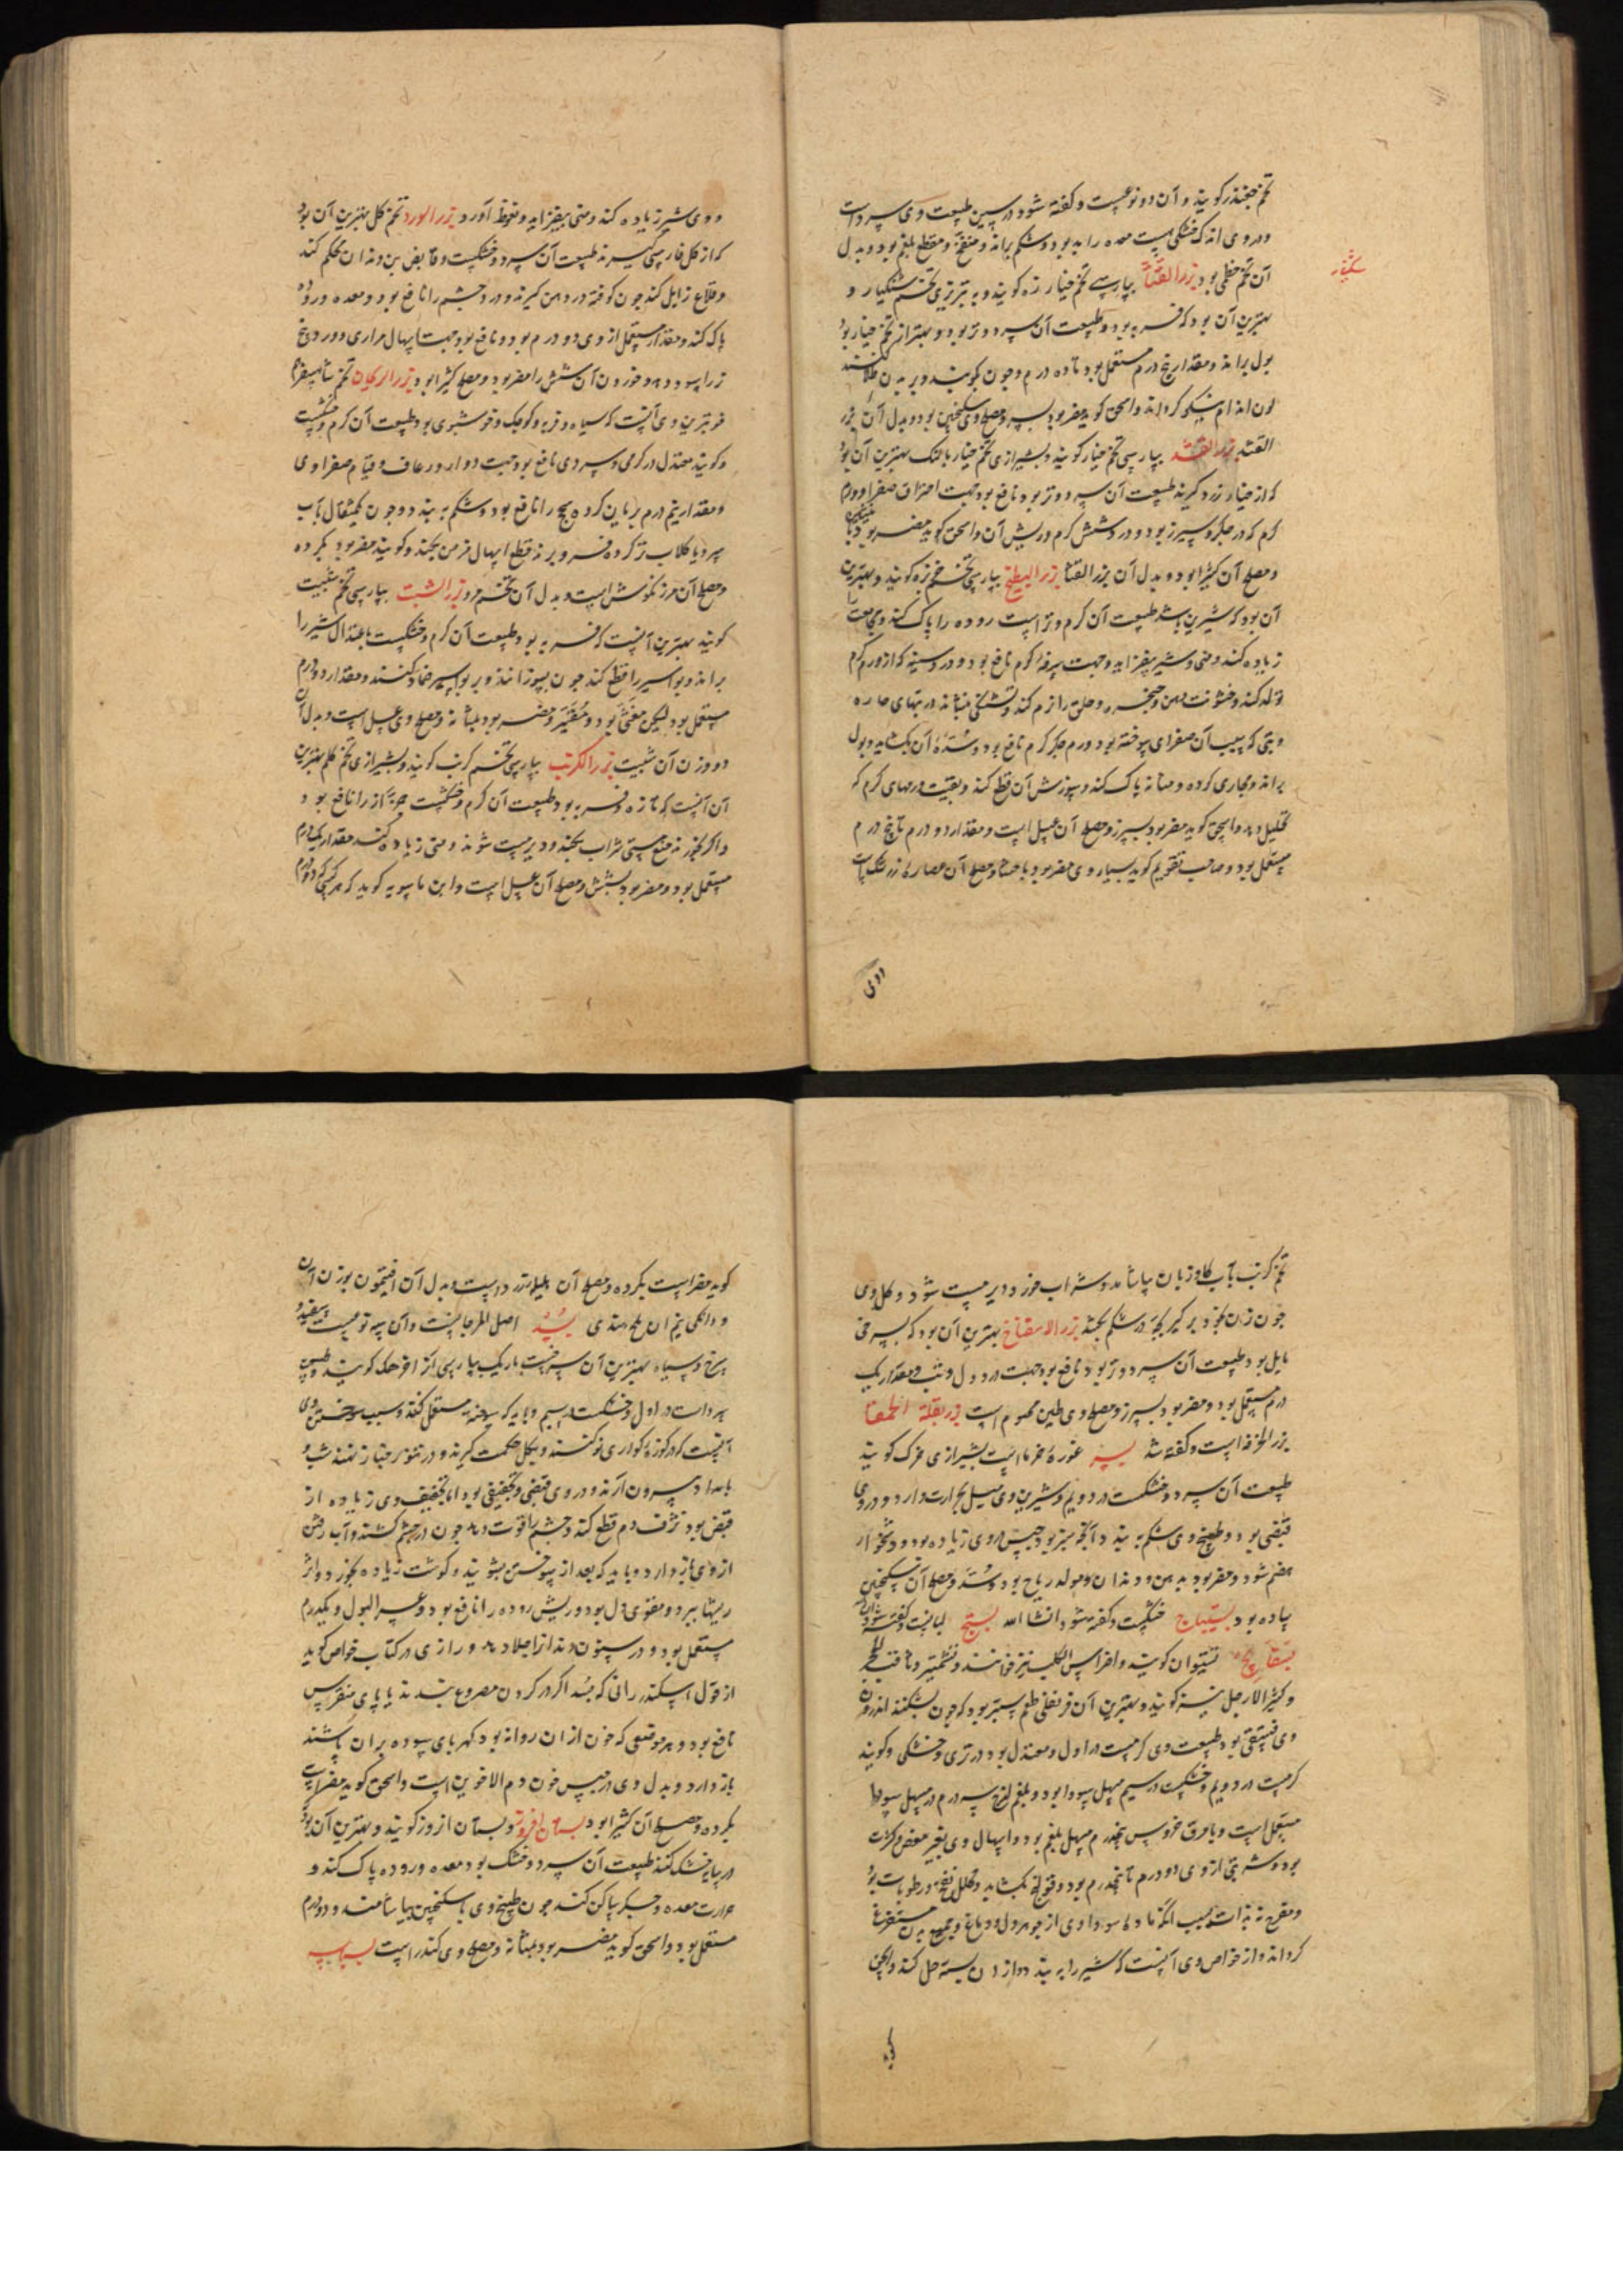 تخم چغندر گویند و آن دو نوعست و گفته شود در سین طبیعت وی سرد است
و در وی اندک خشکی هست معده را بد بود و شکم براند و منفخ و مقطع بلغم بود و بدل
آن تخم خطمی بود بزر القثا بپارسی تخم خیار زه گویند و به تبریزی تخم شنکیار و
شنکیار
بهترین آن بود که فربه بود و طبیعت آن سرد و تر بود و بهتر از تخم خیار بود
بول براند و مقدار پنج درم مستعمل بود تا ده درم و چون بکوبند و بر بدن طلا کنند
لون اندام نیکو گرداند و اسحق گوید مضر بود بسپرز و مصلح وی سکنجبین بود و بدل آن بزر
القثد بزر القثد بپارسی تخم خیار گویند و بشیرازی تخم خیار بالنک بهترین آن بود
که از خیار زرد گیرند طبیعت آن سرد و تر بود نافع بود جهت احتراق صفرا و ورم
گرم که در جگر و سپرز بود و درد شش گرم و ریش آن و اسحق گوید مضر بود
و مصلح آن کثیرا بود و بدل آن بزر القثا بزر البطیخ بپارسی تخم خربزه گویند و بهترین
آن بود که شیرین باشد طبیعت آن گرم و تر است روده را پاک کند و مجامعت را
زیاده کند و منی و شیر بیفزاید و جهت سرفه گرم نافع بود و درد سینه که از ورم گرم
تولد کند و خشونت دهن و حنجره و حلق را نرم کند و تشنگی بنشاند در تبهای حاره
و تبی که بسبب آن صفرای سوخته بود و ورم جگر گرم نافع بود و سده آن بگشاید و بول
براند و مجاری گرده و مثانه پاک کند و سوزش آن قطع کند و بقیت ورمهای گرم که
تحلیل دهد و اسحق گوید مضر بود بسپرز و مصلح آن عسل است و مقدار دو درم تا پنج درم
مستعمل بود و صاحب تقویم گوید بسیار وی مضر بود باحشا و مصلح آن عصاره زرشک است
و وی
و وی شیر زیاده کند و منی بیفزاید و نعوظ آورد بزر الورد تخم گل بهترین آن بود
که از گل فارسی گیرند طبیعت آن سرد و خشکست و قابض بن دندان محکم کند
و قلاع زایل کند چون کوفته در دهن گیرند و درد چشم را نافع بود و معده و روده
پاک کند و مقدار مستعمل از وی دو درم بود و نافع بود جهت اسهال مراری و درد رخ
زرا سود دهد و خوردن آن شش را مضر بود و مصلح کثیرا بود بزر الریحان تخم شاهسفرم
خوبترین وی آنست که سیاه و فربه و کوچک و خوشبوی بود طبیعت آن گرم و خشکست
و گویند معتدل در گرمی و سردی نافع بود جهت دوار و رعاف و قیام صفراوی
و مقدار نیم درم بریان کرده سحج را نافع بود و شکم به بندد و چون یکمثقال بآب
سرد یا گلاب تر کرده فرو برند قطع اسهال مزمن بکند و گویند مضر بود بگرده
و مصلح آن مرزنگوش است و بدل آن تخم مرو بزر الشبت بپارسی تخم شبت
گویند بهترین آنست که فربه بود طبیعت آن گرم و خشکست باعتدال شیر را
براند و بواسیر را قطع کند چون بسوزانند و بر بواسیر ضماد کنند و مقدار دو درم
مستعمل بود لیکن مغثی بود و مقیّر و مضر بود بمثانه و مصلح وی عسل است و بدل آن
دو وزن آن شبت بزر الکرنب بپارسی تخم کرنب گویند و بشیرازی تخم کلم بهترین
آن آنست که تازه و فربه بود طبیعت آن گرم و خشکست را نافع بود و
و اگر بخورند منع مستی شراب بکند و دیر مست شوند و منی زیاده کند مقدار یکدرم
مستعمل بود و مضر بود بشش و مصلح آن عسل است و ابن ماسویه گوید که هر کس که دو درم
تخم کرنب بآب گاو زبان بیاشامد و شراب خورد دیر مست شود و گل وی
چون زن بخود برگیرد بچه در شکم بکشد بزر الاسفاناخ بهترین آن بود که بسرخی
مایل بود طبیعت آن سرد و تر بود نافع بود جهت درد دل و تب و مقدار یک
درم مستعمل بود و مضر بود بسپرز و مصلح وی طین مختوم است بزر بقلة الحمقا
بزر الخرفه است و گفته شد بسر غوره خرما است بشیرازی خرک گویند
طبیعت آن سرد و خشکست در دویم و شیرین وی میل بحرارت دارد و در وی
قبضی بود و طبیخ وی شکم به بندد و آنچه سبز بود حبس وی زیاده بود و دشخوار
هضم شود و مضر بود بدهن و دندان و مولد ریاح بود و سده و مصلح آن سکنجبین
ساده بود بستیباج خشکست و گفته شود انشا الله بستج لبانست و گفته شود
بسفایج تنتیوان گویند و اضراس الکلب نیز خوانند و تشتمیر و ثاقب الحجر
و کثیر الارجل نیز گویند و بهترین آن قرنفلی طعم سطبر بود که چون بشکنند اندرون
وی فستقی بود طبیعت وی گرمست در اول و معتدل بود در تری و خشکی و گویند
گرمست در دویم و خشکست در سیم مسهل سودا بود و بلغم لزج سه درم در مسهل سودا
مستعمل است و با مرق خروس پنجدرم مسهل بلغم بود و اسهال وی بغیر مغص و کرب
بود و شربتی از وی دو درم تا پنجدرم بود و قولنج بگشاید و محلل نفخ و رطوبات بود
و مفرح نه بذات بسبب آنکه ماده سوداوی از جوهر دل و دماغ و جمیع بدن مستفرغ
گرداند و از خواص وی آنست که شیر را به بندد و از آن بسته حل کند و اسحق
گوید
گوید مضر است بگرده و مصلح آن هلیله زرد است و بدل آن افتیمون بوزن آن
و دانگی نیم آن ملح هندی بسد اصل المرجانست و آن سه نوعست سفید و
سرخ و سیاه بهترین آن سرخست باریک بپارسی آنرا خرهک گویند و طبیعت
سرد است در اول و خشکست در سیم و باید که سوخته مستعمل کنند و سبب سوختن وی
آنست که در کوزه گواری نو کنند و بگل حکمت گیرند و در تنور خباز نهند شب و
بامداد بیرون آرند و در وی قبضی و تجفیفی بود اما تجفیف وی زیاده از
قبض بود نزف دم قطع کند و چشم را قوت دهد چون در چشم کشند و آب رفتن
از وی باز دارد و باید که بعد از سوختن بشویند و گوشت زیاده بخورد و اثر
ریشها ببرد و مقوی دل بود و ریش روده را نافع بود و عسر البول و یکدرم
مستعمل بود و در سنون دندانرا جلا دهد و رازی در کتاب خواص گوید
از قول اسکندرانی که بسد اگر در گردن مصروع بندند یا پای منقرس
نافع بود و هر موضعی که خون از آن روانه بود کهربای سوده بران پاشند
باز دارد و بدل وی در حبس خون دم الاخوین است و اسحق گوید مضر است
بگرده و مصلح آن کثیرا بود بستان افروز و بستان افروز گویند و بهترین آن بود
در سایه خشک کنند طبیعت آن سرد و خشک بود معده و روده پاک کند و
حرارت معده و جگر ساکن کند چون طبیخ وی با سکنجبین بیاشامند و دو درم
مستعمل بود و اسحق گوید مضر بود بمثانه و مصلح وی کندر است بسباسه